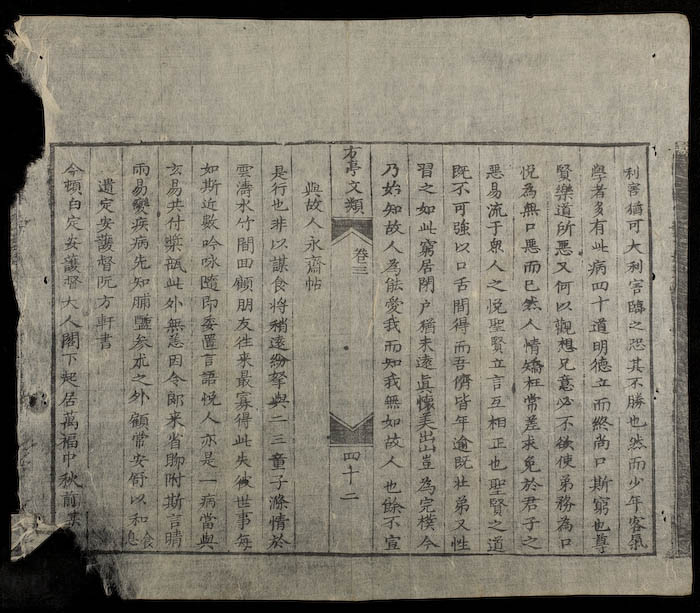 利害猶可大利害臨之恐其不勝也然而少年客氣
學者多有此病四十道明德立而終尚口斯窮也尊
賢樂道所惡又何以觀想兄意必不欲使弟務為口
悅為無口惡而已然人情矯枉常差求免於君子之
惡易流于衆人之悅聖賢立言互相正也聖賢之道
既不可強以口舌間得而吾儕皆年逾既壯弟又性
習之如此窮居閉户猶未遠眞懷美出山豈為完樸今
乃始知故人為能愛我而知我無如故人也餘不宣
方亭文類 卷三 四十二
與故人永齋帖
是行也非以謀食將稍遠紛拏與二三童子滌情於
雲濤水竹間回顧朋友往来最寡得此失彼世事每
如斯近數吟咏隨即委置言語悅人亦是一病當與
玄易共付槳瓿此外無恙因令郎来省聊附斯言晴
雨易變疾病先知脯醢參朮之外顧常安舒以和食息
遺定安護督阮方軒書
今頓白定安護督大人閣下起居萬福中秋前